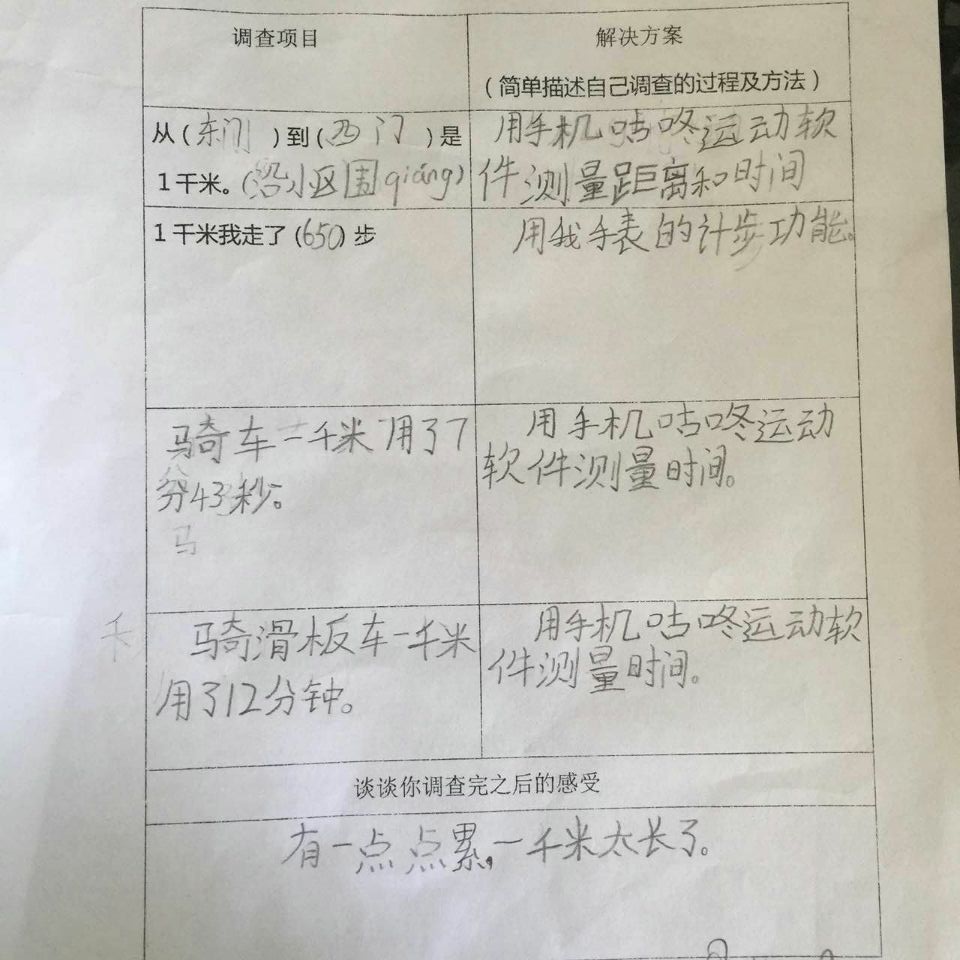 调查项目
解决方案
（简单描述自己调查的过程及方法）
从（东门）到（西门）是
1千米。（沿小区围qiáng）
用手机咕咚运动软
件测量距离和时间
1千米我走了（650）步
用我手表的计步功能。
骑车一千米用了7
分43秒。
马
用手机咕咚运动
软件测量时间。
千
骑滑板车一千米
用了12分钟。
用手机咕咚运动软
件测量时间。
谈谈你调查完之后的感受
有一点点累,一千米太长了。